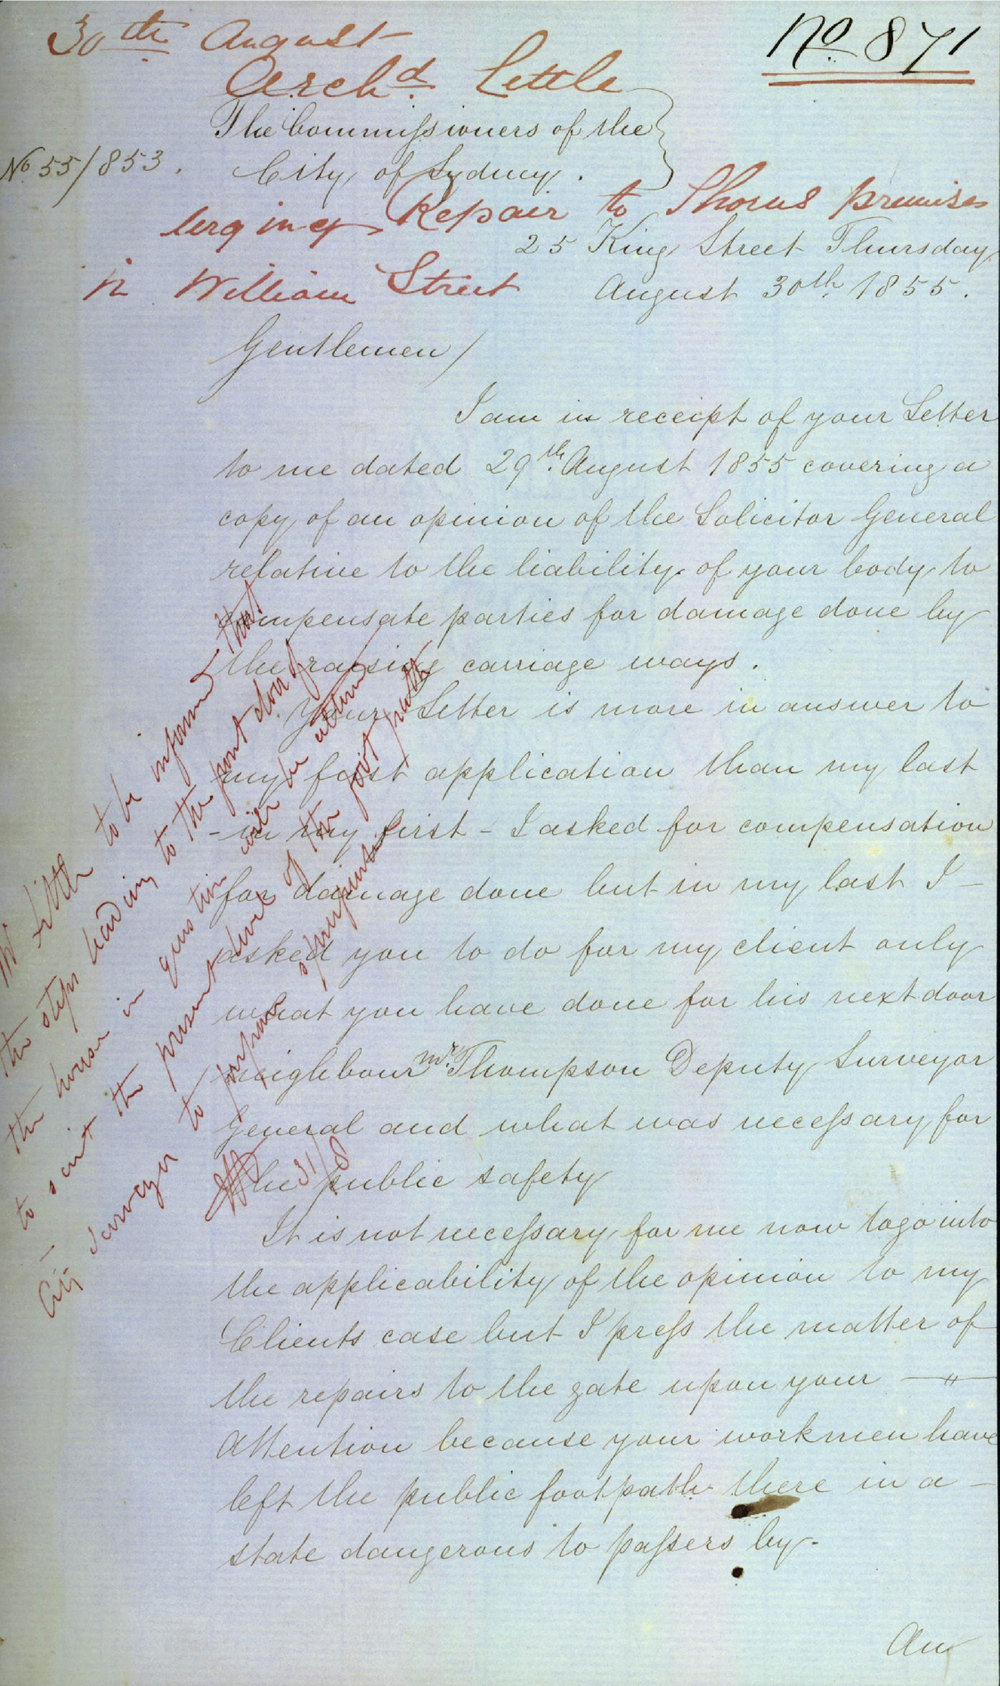 30th August
No. 871
Archd. Little
The Commissioners of the
City of Sydney.
No 55/853.
urging Repair to premises
in William Street
25 King Street Thursday
August 30th 1855.
Gentlemen/
I am in receipt of your Letter
to me dated 29th August 1855 covering a
copy of an opinion of the Solicitor General
relative to the liability of your body to
compensate parties for damage done by
the raising carriage ways.
Your Letter is more in answer to
my first application than my last
- in my first - I asked for compensation
for damage done but in my last I -
asked you to do for my client only
what you have done for his next door
neighbour Mr. Thompson Deputy Surveyor
General and what was necessary for
the public safety
It is not necessary for me now to go into
the applicability of the opinion to my
Clients case but I press the matter of
the repairs to the gate upon your — " —
Attention because your workmen have
left the public footpath there in a -
state dangerous to passers by.
Mr Little to be informed that
the steps leading to the front door of
the house in question will be altered
to suit the present level of the foot path
- City Surveyor to prepare specification
31/8